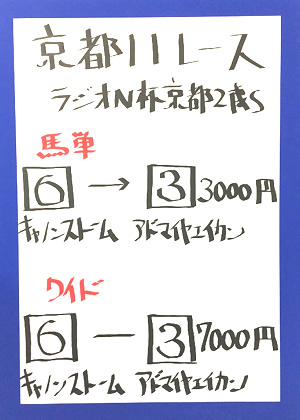 京都11レース
ラジオN杯京都2歳S
馬単
6→3 3000円
キャノンストーム アドマイヤエイカン
ワイド
6―3 7000円
キャノンストーム アドマイヤエイカン